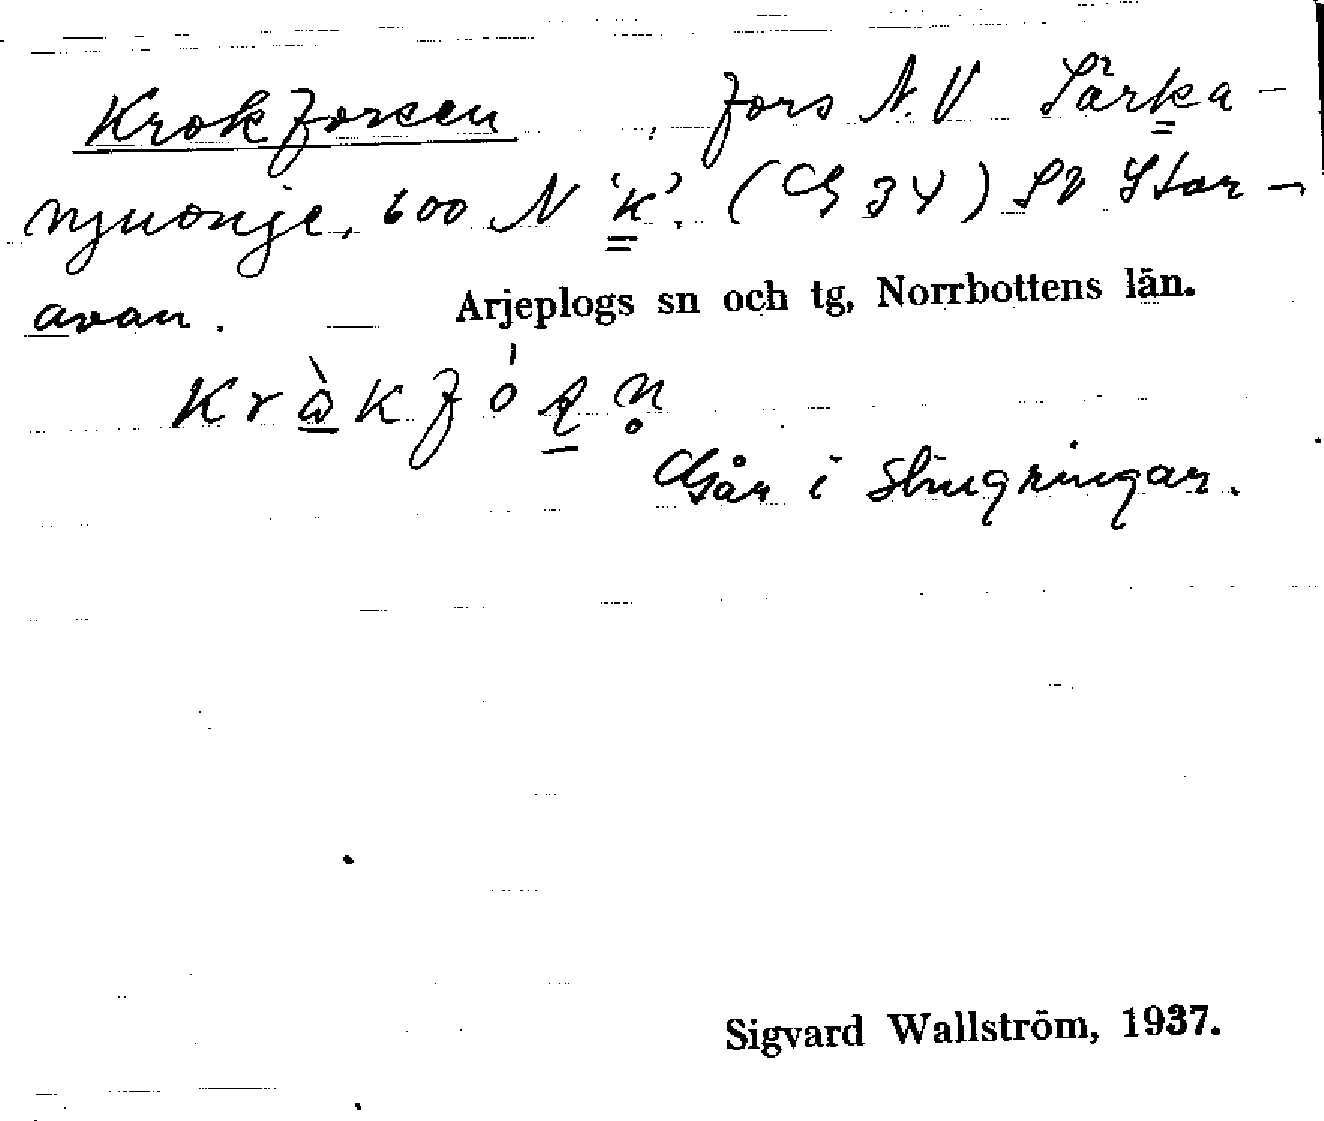 Krokforsen, fors N.V Särka-
njuonje, 600 N 'k'. (G 34) SV Stor-
avan. — Arjeplogs sn och tg, Norrbottens län.
Går i slingringar.
Sigvard Wallström, 1937.